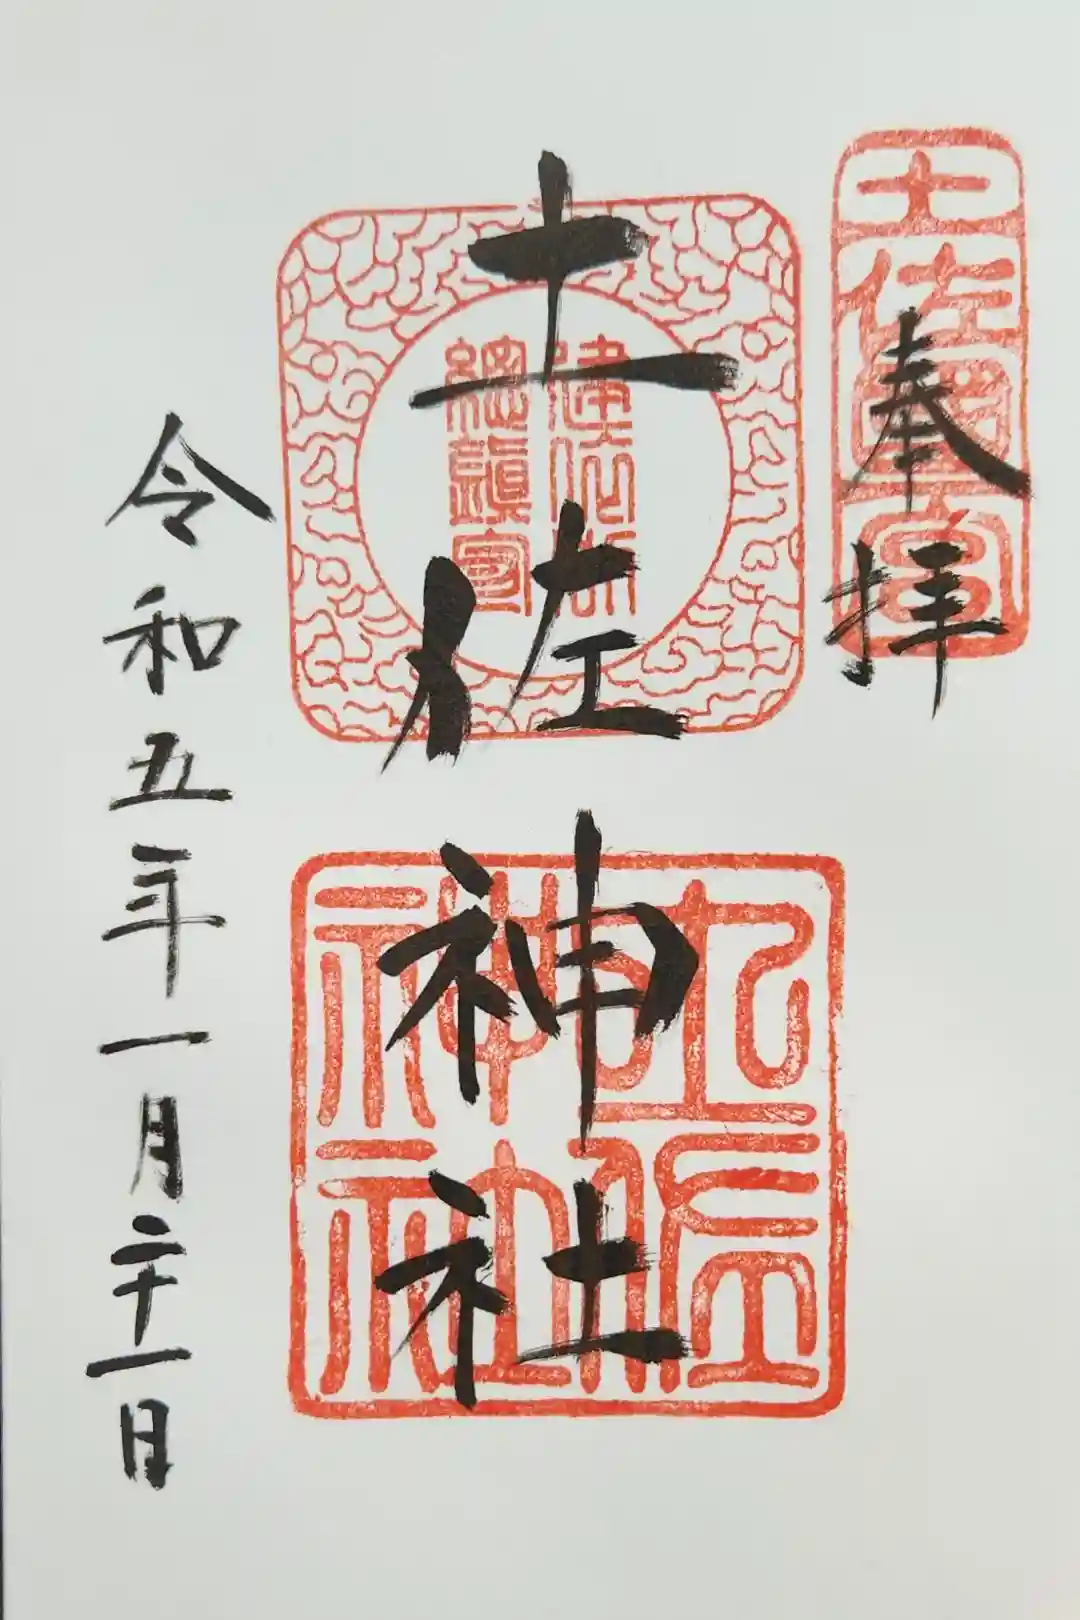 奉拝
土佐國一宮
土佐神社
建依別
総鎮守
土佐
神社
令和五年一月二十一日